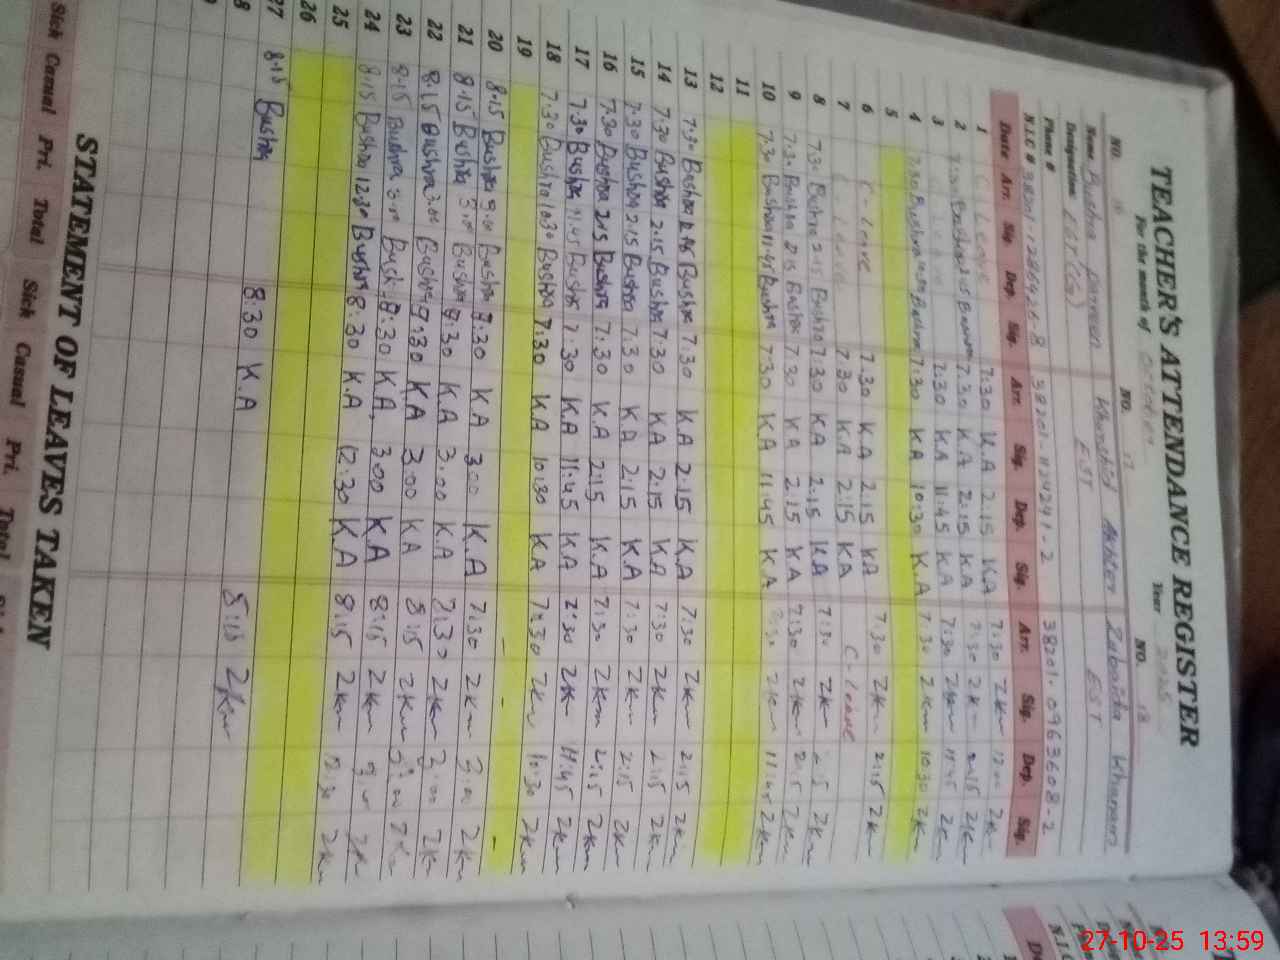 TEACHER'S ATTENDANCE REGISTER
For the month of October Year 2025
NO. 16 NO. 17 NO. 18
Name Bushra Parveen Khurshid Akhter Zubaida Khanam
Designation EST EST
Phone #
N.I.C # 38201-1286426-8 38201-1124241-2 38201-0963608-2
Date Arr. Sig. Dep. Sig. Arr. Sig. Dep. Sig. Arr. Sig. Dep. Sig.
1 C-Leave 7:30 K.A 2:15 KA 7:30 Zkm 12:00 Zkm
2 7:30 Bushra 2:15 Bushra 7.30 K.A 2:15 KA 7:30 Zkm 2:15 Zkm
3 7:30 KA 11:45 KA 7:30 Zkm 11:45 Zkm
4 7:30 Bushra 10:30 Bushra 7:30 KA 10:30 K.A 7:30 Zkm 10:30 Zkm
5
6 C-Leave 7.30 KA 2:15 KA 7:30 Zkm 2:15 Zkm
7 C-Leave 7.30 KA 2:15 KA C-Leave
8 7:30 Bushra 2:15 Bushra 7:30 KA 2:15 KA 7:30 Zkm 2:15 Zkm
9 7:30 Bushra 2:15 Bushra 7.30 KA 2:15 KA 7:30 Zkm 2:15 Zkm
10 7:30 Bushra 11:45 Bushra 7:30 KA 11:45 KA 7:30 Zkm 11:45 Zkm
11
12
13 7:30 Bushra 2:15 Bushra 7.30 KA 2:15 K.A 7:30 Zkm 2:15 Zkm
14 7:30 Bushra 2:15 Bushra 7.30 KA 2:15 KA 7:30 Zkm 2:15 Zkm
15 7:30 Bushra 2:15 Bushra 7.30 K.A 2:15 K.A 7:30 Zkm 2:15 Zkm
16 7:30 Bushra 2:15 Bushra 7:30 K.A 2:15 K.A 7:30 Zkm 2:15 Zkm
17 7:30 Bushra 11:45 Bushra 7:30 KA 11:45 KA 7:30 Zkm 11:45 Zkm
18 7:30 Bushra 10:30 Bushra 7:30 KA 10:30 KA 7:30 Zkm 10:30 Zkm
19
20 8:15 Bushra 3:00 Bushra 8:30 KA 3.00 K.A 7:30 Zkm 3:00 Zkm
21 8.15 Bushra 3:00 Bushra 8:30 KA 3.00 KA 7:30 Zkm 3:00 Zkm
22 8.15 Bushra 3:00 Bushra 8:30 KA 3:00 KA 8:15 Zkm 3:00 Zkm
23 8:15 Bushra 3:00 Bushra 8:30 KA 3.00 K.A 8:15 Zkm 3:00 Zkm
24 8.15 Bushra 12:30 Bushra 8:30 KA 12:30 K.A 8:15 Zkm 12:30 Zkm
25
26
27 8.15 Bushra 8:30 K.A 8:15 Zkm
STATEMENT OF LEAVES TAKEN
Sick Casual Pri. Total Sick Casual Pri. Total
27-10-25 13:59